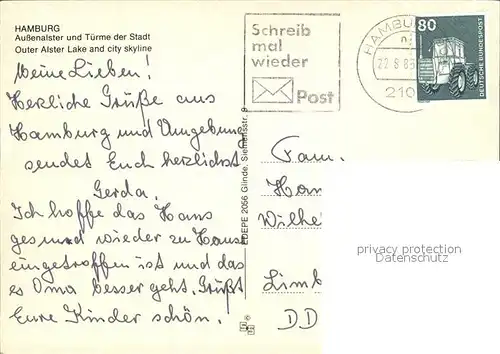 HAMBURG
Außenalster und Türme der Stadt
Outer Alster Lake and city skyline
Schreib
mal
wieder
Post
HAMBU
22.8.8
210
80
DEUTSCHE BUNDESPOST
Meine Lieben!
Herzliche Grüße aus
Hamburg und Umgebung
sendet Euch herzlichst
Gerda.
Ich hoffe das Hans
gesund wieder zu Hause
eingetroffen ist und das
es Oma besser geht. Grüßt
Eure Kinder schön.
EDEPE 2056 Glinde, Siemensstr. 9
Fam.
Han
Wilhe
Limb
DD
privacy protection
Datenschutz